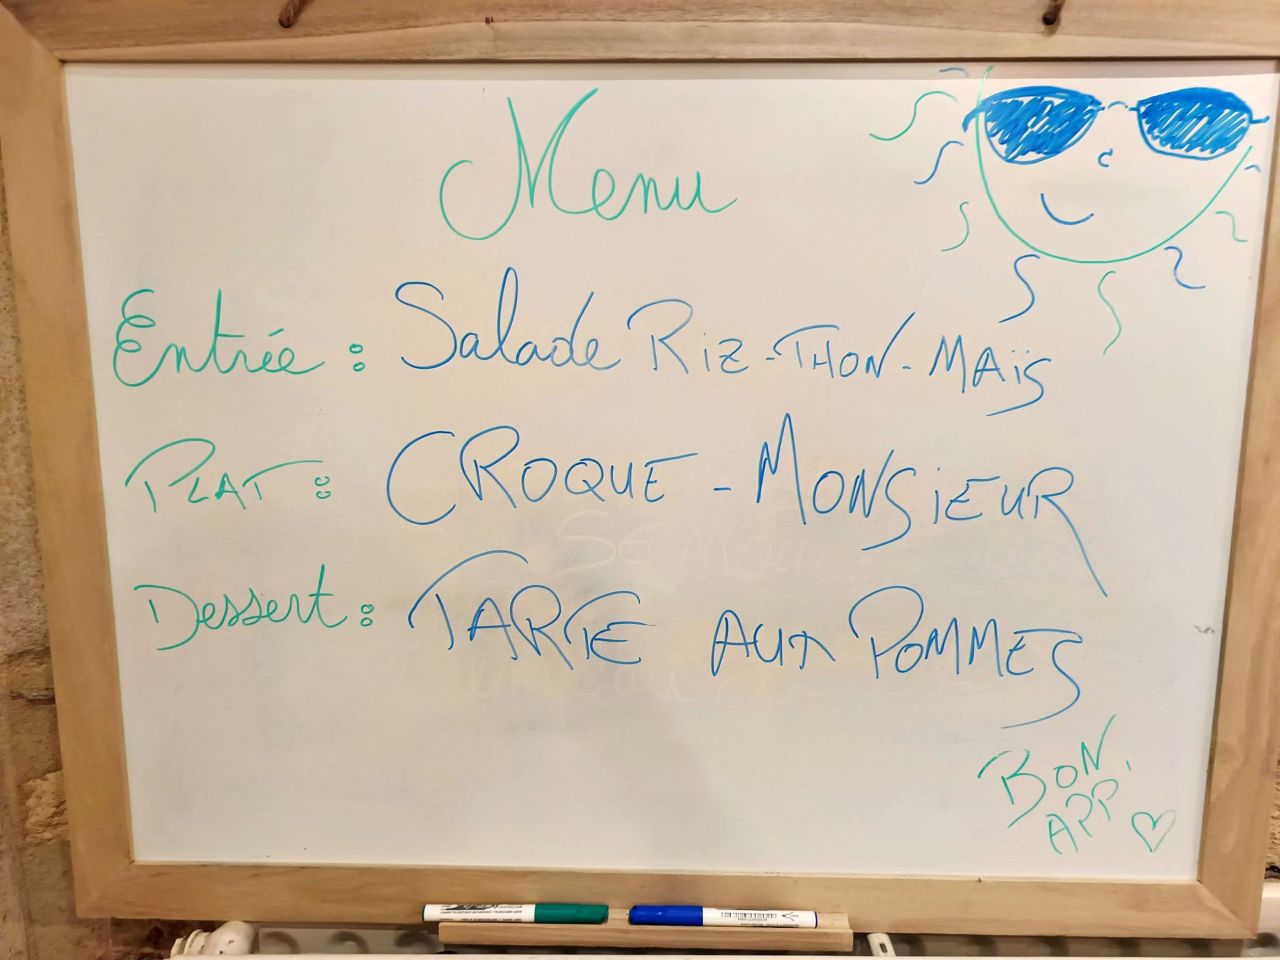 Menu
Entrée : Salade Riz-THON-MAïs
PLAT : CROQUE-MONSiEUR
Dessert : TARTE AUX POMMES
BON
APP